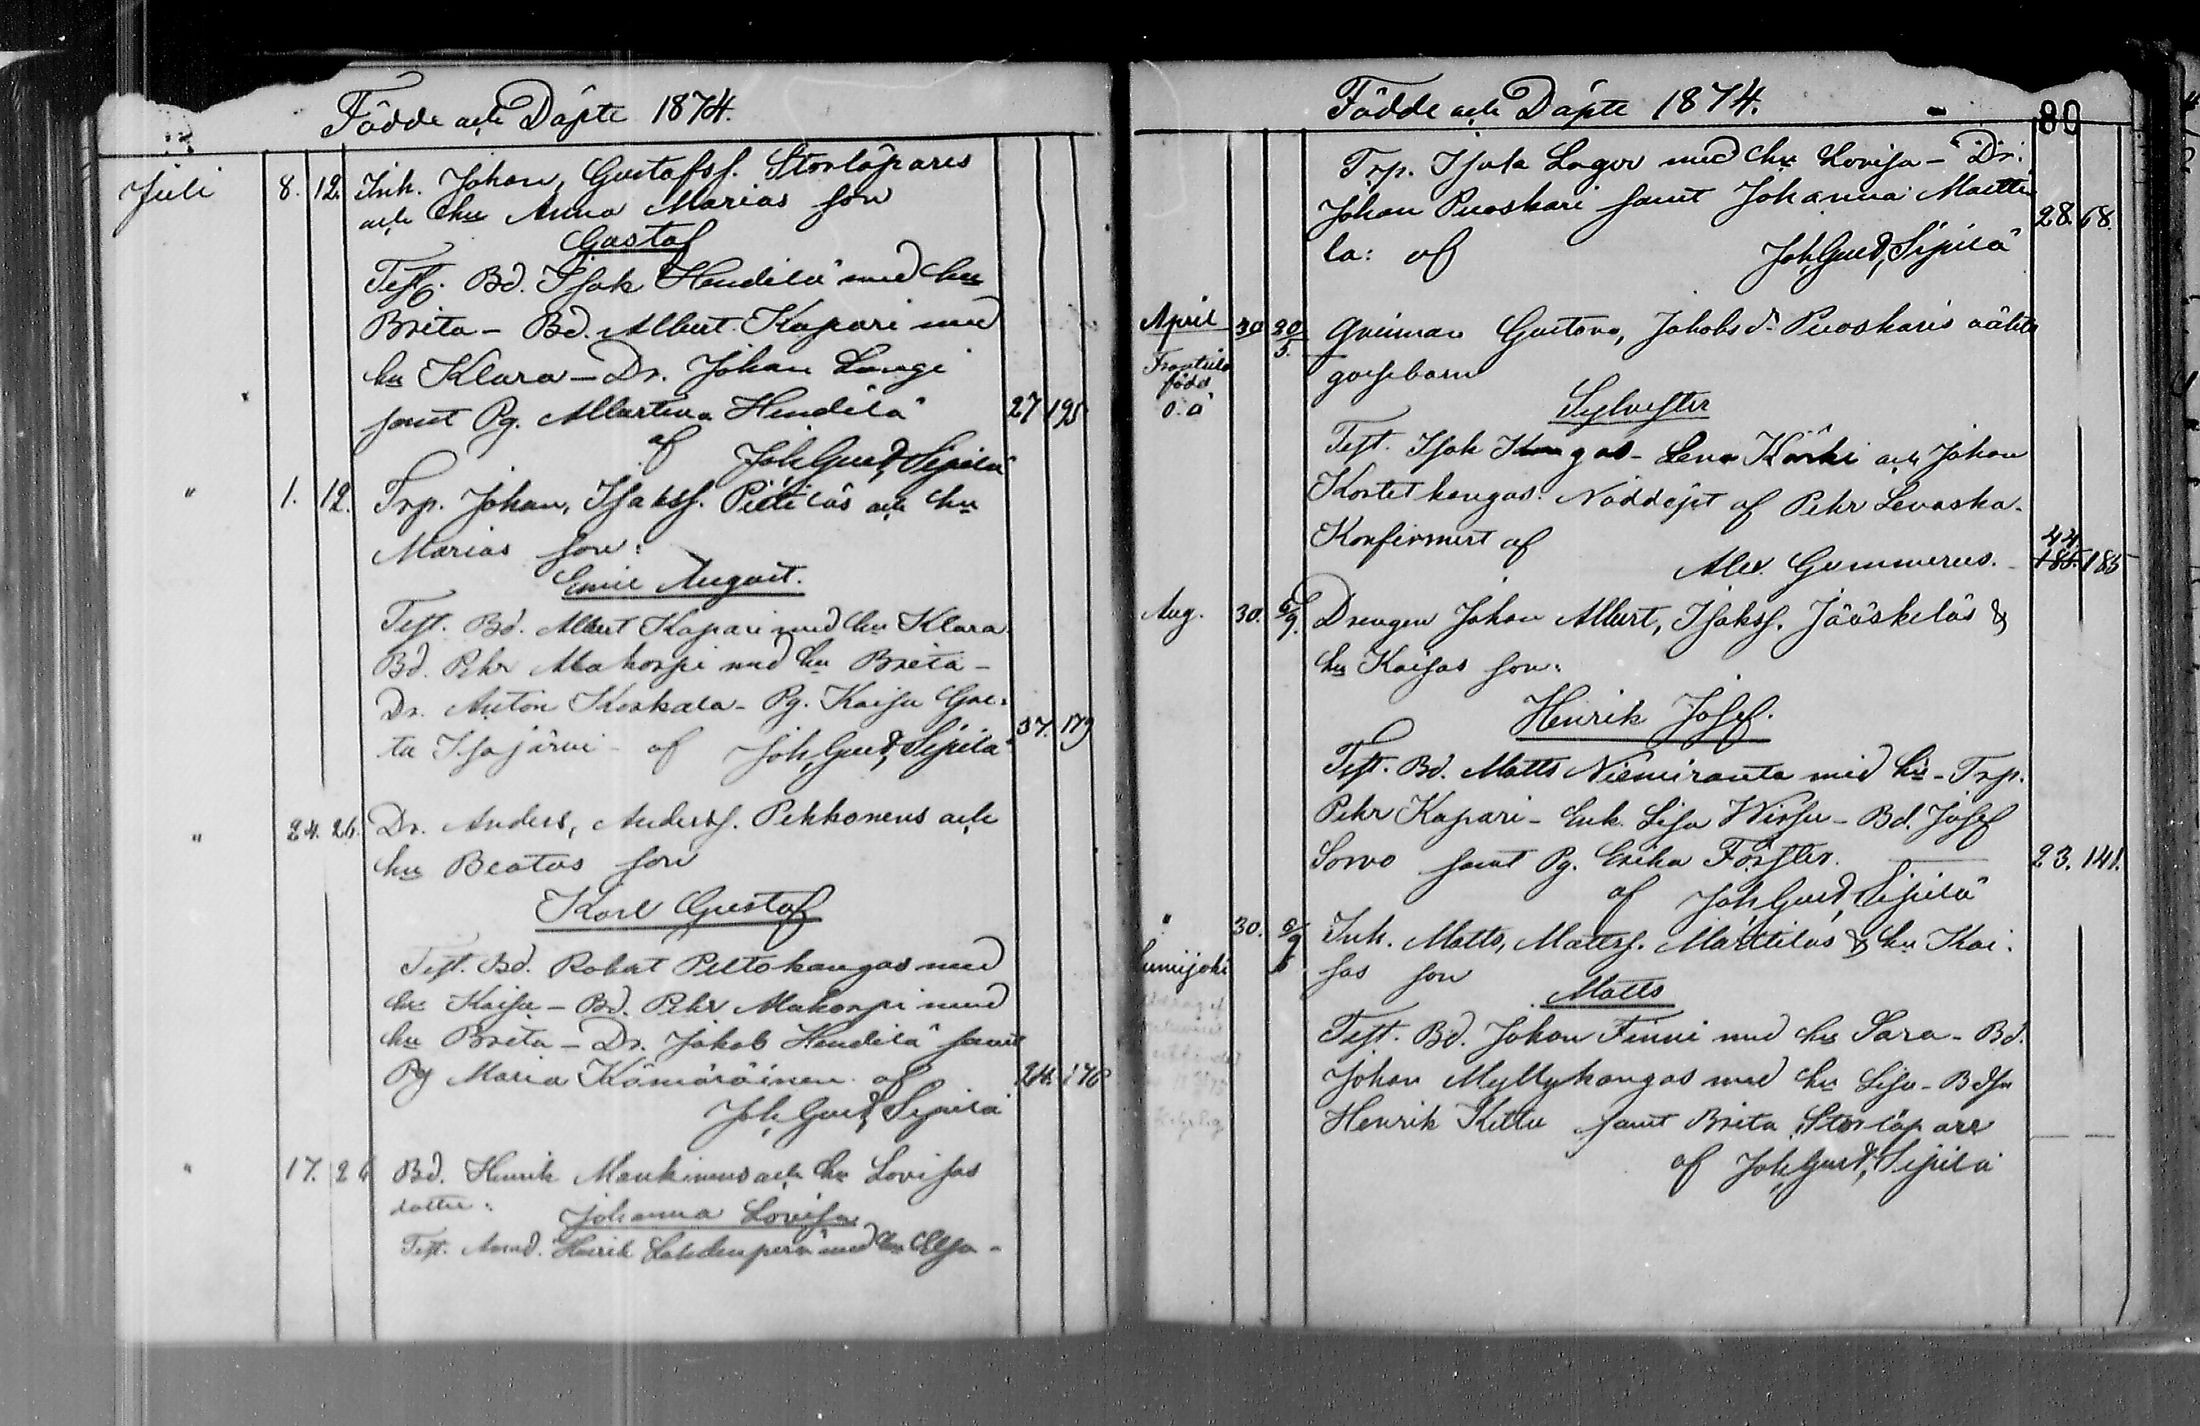 Födde och Döpte 1874.
Juli 8. 12. Inh. Johan, Gustafss. Storlöpares
och hu Anna Marias son
Gustaf
Test. Bd. Isak Hendilä med hu
Brita - Bd. Albert Kapari med
hu Klara - Dr. Johan Langi
samt Pg. Albertina Hendilä 27 195
af Joh. Gust. Sipilä
" 1. 12. Trp. Johan, Isakss. Pietiläs och hu
Marias son:
Emil August.
Test. Bd. Albert Kapari med hu Klara
Bd. Pehr Mahorpi med hu Brita -
Dr. Anton Koskela - Pg. Kaisa Gre-
ta Isojärvi - af Joh. Gust. Sipilä 37. 179
" 24. 26. Dr. Anders, Anderss. Pekkonens och
hu Beatas son
Karl Gustaf
Test. Bd. Robert Peltokangas med
hu Kaisa - Bd. Pehr Mahorpi med
hu Brita - Dr. Jakob Hendilä samt
Pg Maria Kämäräinen af 24. 176
Joh. Gust. Sipilä
" 17. 26 Bd. Henrik Mankinens och hu Lovisas
dotter: Johanna Lovisa
Test. Henrik Lahdenperä med hu Elsa -
Födde och Döpte 1874. 80
Trp. Isak Lager med hu Lovisa - Dr.
Johan Puoskari samt Johanna Martti
la: af Joh. Gust. Sipilä 28. 68.
April 30 20/5. Qvinnan Gustava, Jakobs dr Puoskaris oäkta
Frantsila
född
o. ä
gossebarn
Sylvester
Test. Isak Kangas - Lena Kärki och Johan
Kortetkangas. Nöddöpt af Pehr Levaska.
Konfirmert af Alex. Gummerus. 44. 185. 185
Aug. 30. 6/9. Drengen Johan Albert, Isakss. Jääskeläs &
hu Kaisas son:
Henrik Josef.
Test. Bd. Matts Niemiranta med hu - Trp.
Pehr Kapari - Enk. Lisa Wirsu - Bd. Josef
Sorvo samt Pg. Erika Forsster. 23. 141.
af Joh. Gust. Sipilä
" 30. 6/9 Inh. Matts, Mattss. Marttilas & hu Kai-
Lumijoki sas son
Matts
Test. Bd. Johan Finni med hu Sara - Bd.
Johan Myllykangas med hu Lisa - Bdsn
Henrik Kittu samt Brita Storlöpare
af Joh. Gust. Sipilä